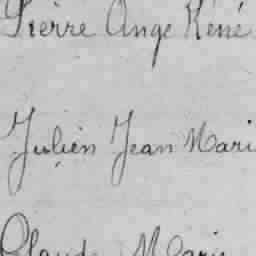 Pierre Ange Réné
Julien Jean Mari
Claude Marie